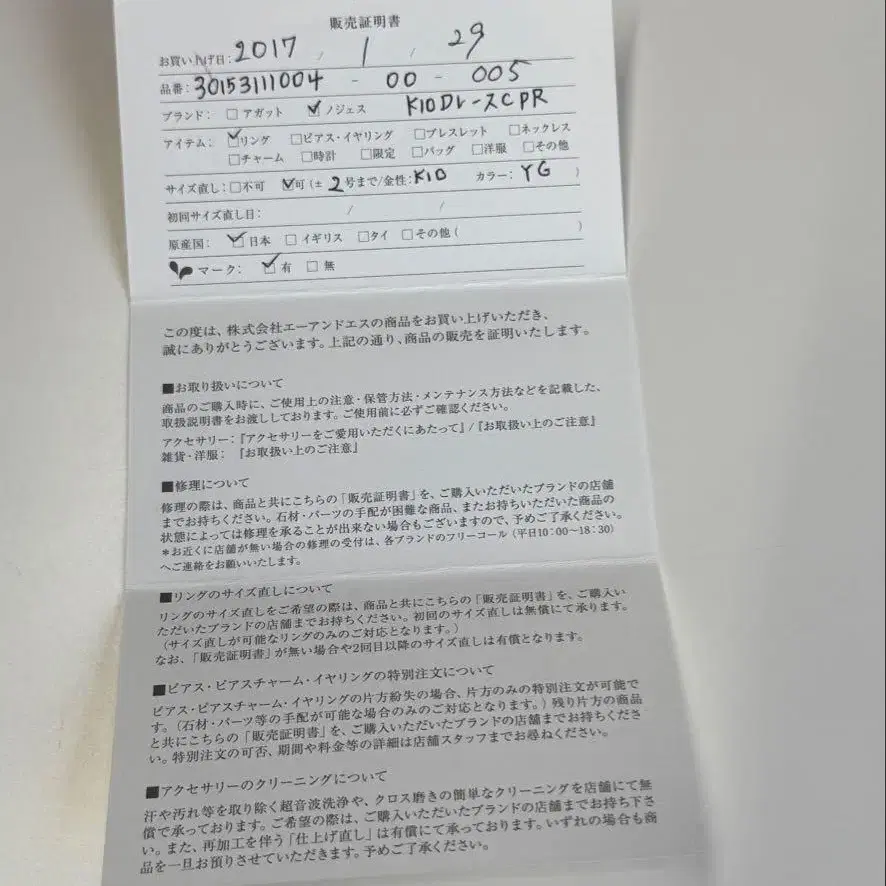 販売証明書
お買い上げ日: 2017 / 1 / 29
品番: 30153111004 - 00 - 005
ブランド: □ アガット ☑ ノジェス K10DレースCPR
アイテム: ☑リング □ピアス・イヤリング □ブレスレット □ネックレス
□チャーム □時計 □限定 □バッグ □洋服 □その他
サイズ直し: □不可 ☑可 (± 2 号まで/金性: K10 カラー: YG )
初回サイズ直し日: / /
原産国: ☑日本 □イギリス □タイ □その他 ( )
マーク: ☑有 □無
この度は、株式会社エーアンドエスの商品をお買い上げいただき、
誠にありがとうございます。上記の通り、商品の販売を証明いたします。
■お取り扱いについて
商品のご購入時に、ご使用上の注意・保管方法・メンテナンス方法などを記載した、
取扱説明書をお渡ししております。ご使用前に必ずご確認ください。
アクセサリー:『アクセサリーをご愛用いただくにあたって』/『お取扱い上のご注意』
雑貨・洋服: 『お取扱い上のご注意』
■修理について
修理の際は、商品と共にこちらの「販売証明書」を、ご購入いただいたブランドの店舗
までお持ちください。石材・パーツの手配が困難な商品、またお持ちいただいた商品の
状態によっては修理を承ることが出来ない場合もございますので、予めご了承ください。
*お近くに店舗が無い場合の修理の受付は、各ブランドのフリーコール (平日10:00~18:30)
へご連絡をお願いいたします。
■リングのサイズ直しについて
リングのサイズ直しをご希望の際は、商品と共にこちらの「販売証明書」を、ご購入い
ただいたブランドの店舗までお持ちください。初回のサイズ直しは無償にて承ります。
(サイズ直しが可能なリングのみのご対応となります。)
なお、「販売証明書」が無い場合や2回目以降のサイズ直しは有償となります。
■ピアス・ピアスチャーム・イヤリングの特別注文について
ピアス・ピアスチャーム・イヤリングの片方紛失の場合、片方のみの特別注文が可能で
す。(石材・パーツ等の手配が可能な場合のみのご対応となります。) 残り片方の商品
と共にこちらの「販売証明書」を、ご購入いただいたブランドの店舗までお持ちくださ
い。特別注文の可否、期間や料金等の詳細は店舗スタッフまでお尋ねください。
■アクセサリーのクリーニングについて
汗や汚れ等を取り除く超音波洗浄や、クロス磨きの簡単なクリーニングを店舗にて無
償で承っております。ご希望の際は、ご購入いただいたブランドの店舗までお持ち下さ
い。また、再加工を伴う「仕上げ直し」は有償にて承っております。いずれの場合も商
品を一旦お預りさせていただきます。予めご了承ください。